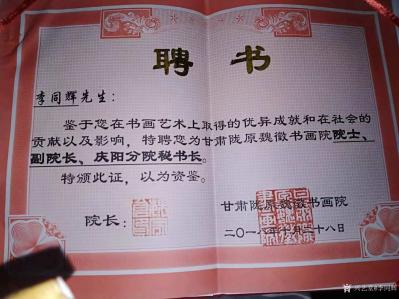 聘书
李同辉先生：
鉴于您在书画艺术上取得的优异成就和在社会的
贡献以及影响，特聘您为甘肃陇原魏徵书画院院士、
副院长、庆阳分院秘书长。
特颁此证，以为资鉴。
院长：
甘肃陇原魏徵书画院
二〇一八年十月二十八日